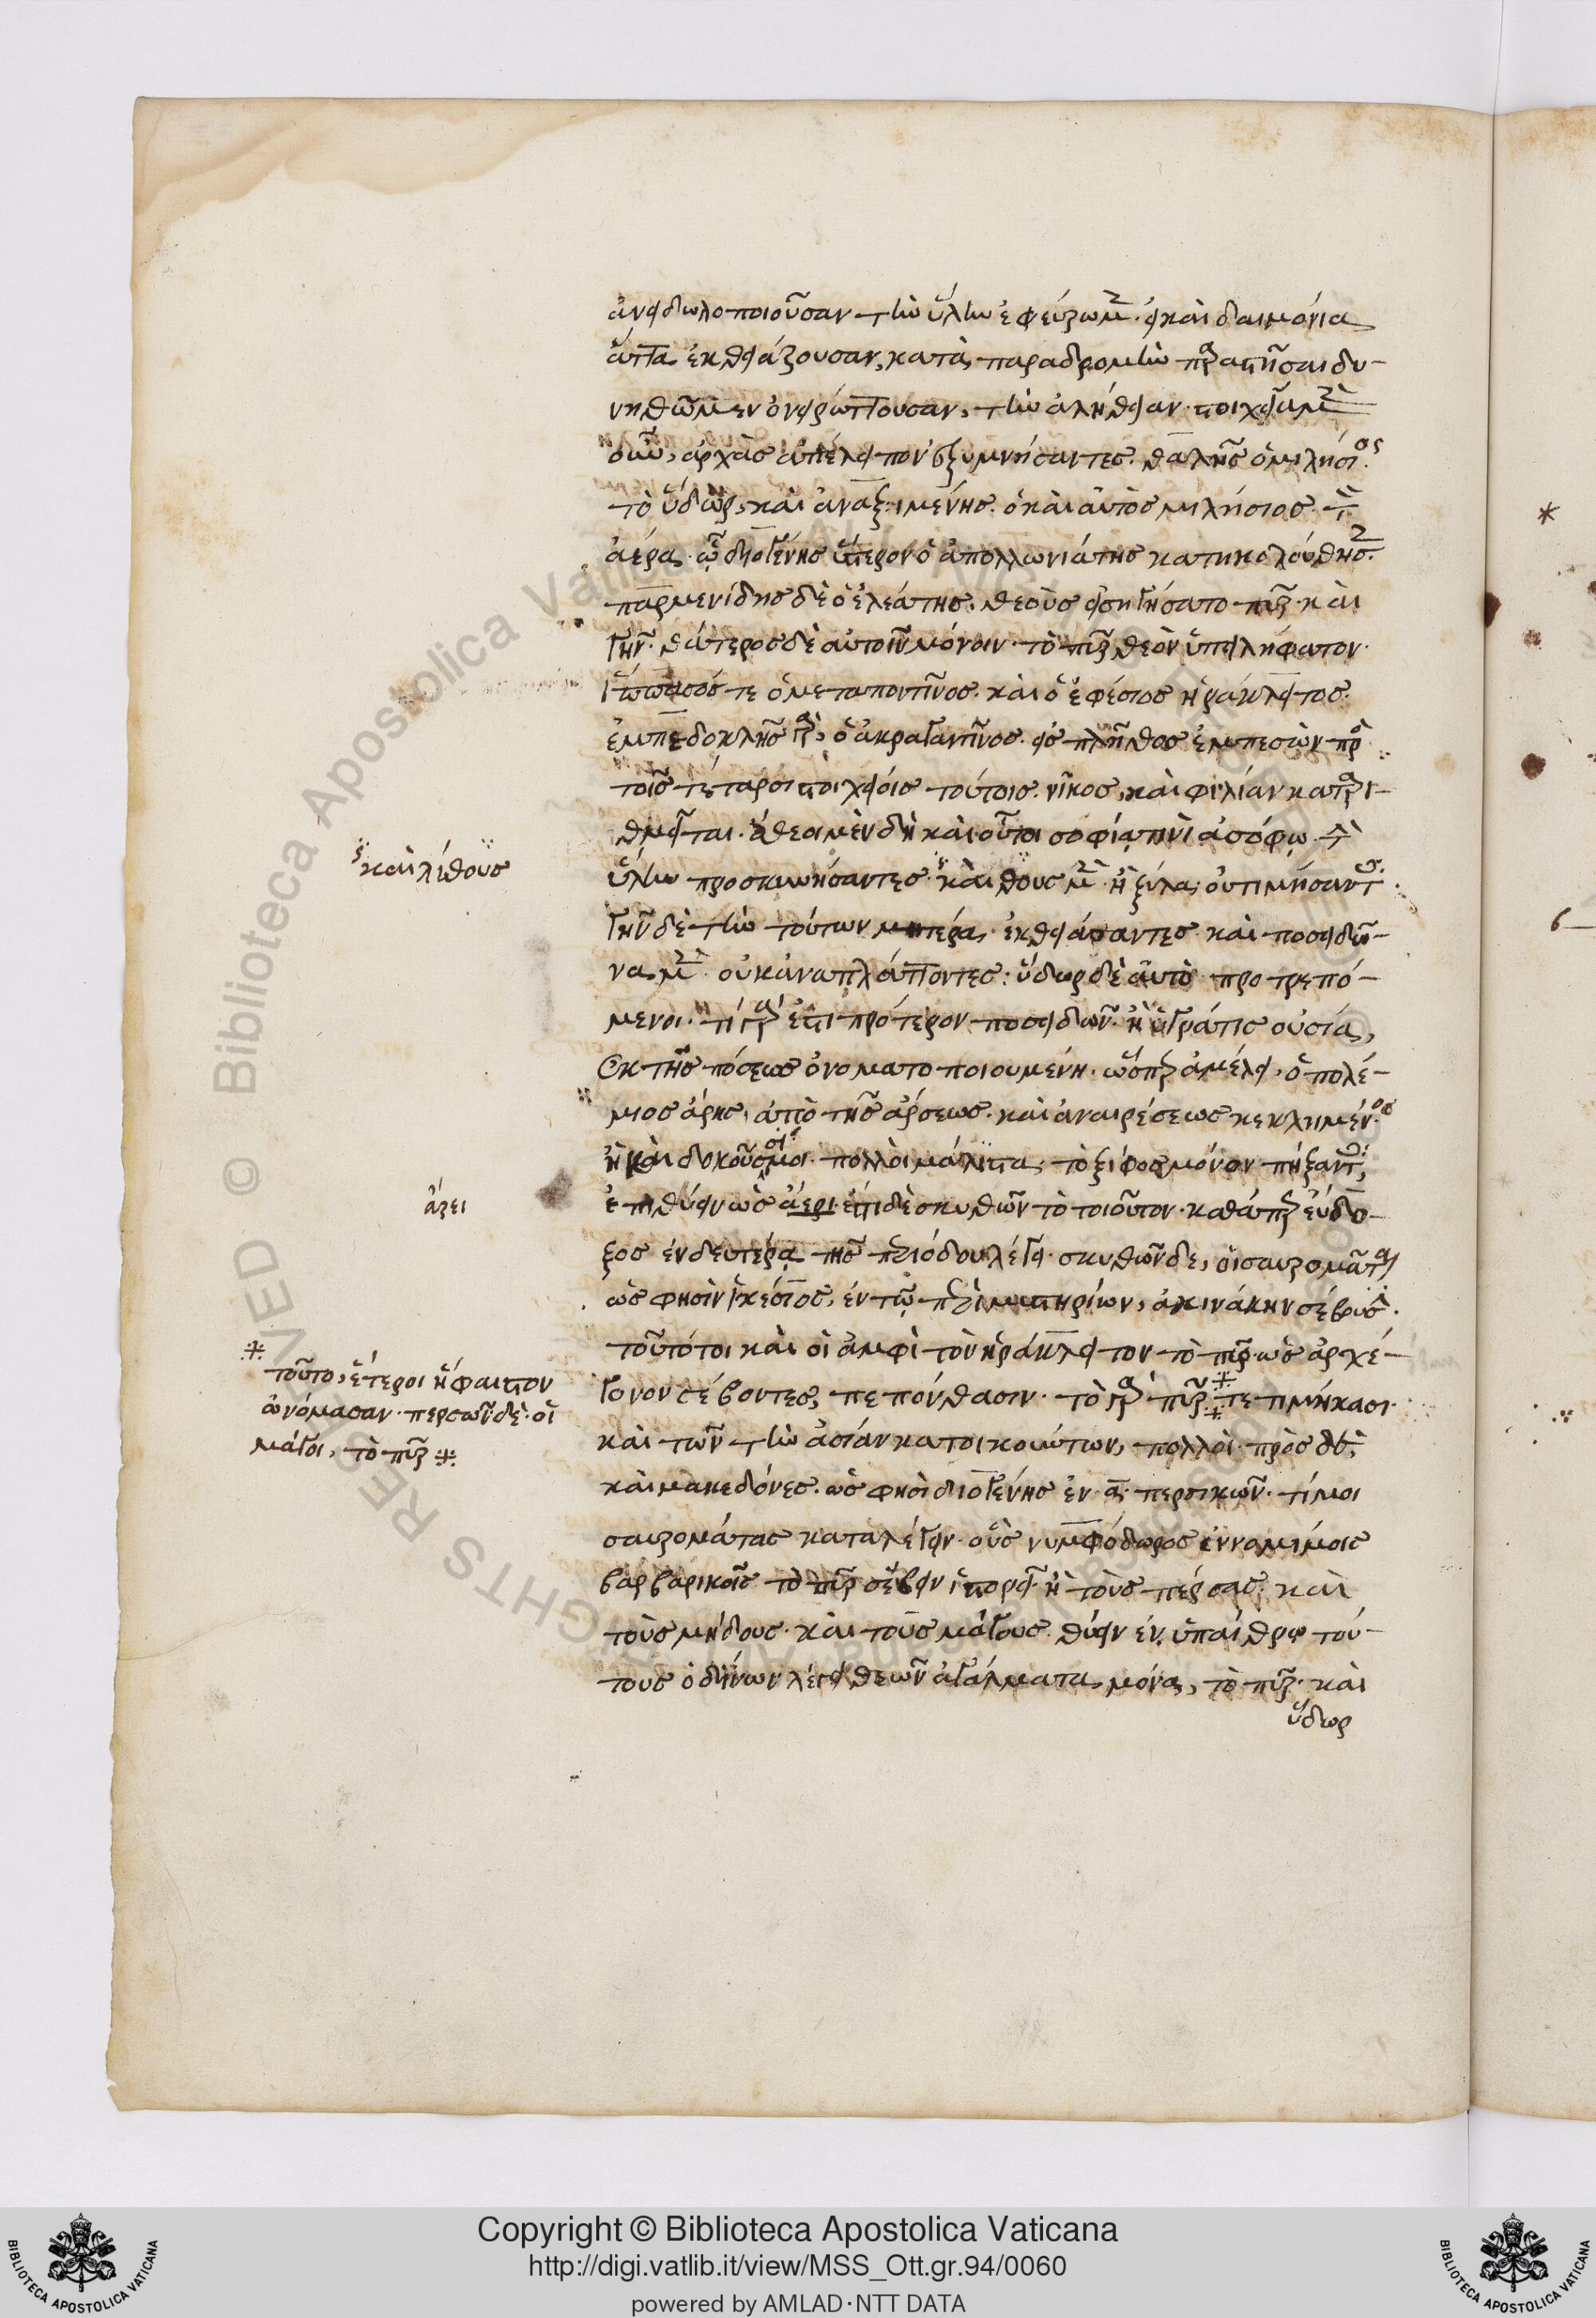 ἀνειδωλοποιοῦσαν τὴν ὕλην ἐφεύρωμεν. εἰ καὶ δαιμόνια
ἄττα ἐκθειάζουσαν, κατὰ παραδρομὴν παραστῆσαι δυ-
νηθῶμεν ὀνειρώττουσαν, τὴν ἀλήθειαν. στοιχεῖα μὲν
οὖν, ἀρχὰς ἀπέλειπον ἐξυμνήσαντες. θαλῆς ὁ μιλήσιος.
τὸ ὕδωρ, καὶ ἀναξιμένης. ὁ καὶ αὐτὸς μιλήσιος. τὸν
ἀέρα. ᾧ διογένης ὕστερον ὁ ἀπολλωνιάτης κατηκολούθησεν.
παρμενίδης δὲ ὁ ἐλεάτης. θεοὺς εἰσηγήσατο πῦρ. καὶ
γῆν. θάτερος δὲ αὐτοῖν μόνοιν. τὸ πῦρ θεὸν ὑπειλήφατον.
ἵππασός τε ὁ μεταποντῖνος. καὶ ὁ ἐφέσιος ἡράκλειτος.
ἐμπεδοκλῆς γὰρ, ὁ ἀκραγαντῖνος. εἰς πλῆθος ἐμπεσὼν. πρὸς
τοῖς τέταρσι στοιχείοις τούτοις. νῖκος, καὶ φιλίαν καταρι-
θμεῖται. ἄθεοι μὲν δὴ καὶ οὗτοι σοφίᾳ τινὶ ἀσόφῳ. τὴν
ὕλην προσκυνήσαντες. καὶ θους μὲν. ἢ ξύλα, οὐ τιμήσαντες.
γῆν δὲ τὴν τούτων μητέρα. ἐκθειάσαντες. καὶ ποσειδῶ-
να μὲν. οὐκ ἀναπλάττοντες: ὕδωρ δὲ αὐτὸ προτρεπό-
μενοι. τί γάρ ἐστι πρότερον ποσειδῶν. ἢ ὑγρά τις οὐσία,
ἐκ τῆς πόσεως ὀνοματοποιουμένη. ὥσπερ ἀμέλει, ὁ πολέ-
μιος ἄρης, ἀπὸ τῆς ἄρσεως. καὶ ἀναιρέσεως κεκλημένος.
ἧ καὶ δοκοῦσί μοι πολλοὶ μάλιστα, τὸ ξίφος μόνον πήξαντες,
ἐπιθύειν ὡς ἄερι. ἔστι δὲ σκυθῶν τὸ τοιοῦτον. καθάπερ εὔδο-
ξος ἐν δευτέρᾳ τῆς περιόδου λέγει. σκυθῶν δε, οἱ σαυρομάται
ὡς φησὶν ἱκέσιος, ἐν τῷ περὶ μυστηρίων, ἀκινάκην σέβουσι.
τοῦτό τοι καὶ οἱ ἀμφὶ τὸν ἡράκλειτον τὸ πῦρ. ὡς ἀρχέ-
γονον σέβοντες, πεπόνθασιν. τὸ γὰρ πῦρ. τετιμήκασι.
καὶ τῶν τὴν ἀσίαν κατοικούντων, πολλοὶ. πρὸς δὲ,
καὶ μακεδόνες. ὡς φησὶ διογένης ἐν α. περσικῶν. τί μοι
σαυρομάτας καταλέγειν. οὓς νυμφόδωρος ἐν νομίμοις
βαρβαρικοῖς τὸ πῦρ σέβειν ἱστορεῖ. ἢ τοὺς πέρσας. καὶ
τοὺς μήδους. καὶ τοὺς μάγους. θύειν ἐν ὑπαίθρῳ τού-
τους ὁ δίνων λέγει. θεῶν ἀγάλματα μόνα, τὸ πῦρ. καὶ
ὕδωρ
καὶ λίθους
ἄρει
τοῦτο, ἕτεροι ἥφαιστον
ὠνόμασαν. περσῶν δὲ. οἱ
μάγοι, τὸ πῦρ
6
© Biblioteca Apostolica Vaticana
ALL RIGHTS RESERVED
Copyright © Biblioteca Apostolica Vaticana
http://digi.vatlib.it/view/MSS_Ott.gr.94/0060
powered by AMLAD·NTT DATA
BIBLIOTECA APOSTOLICA VATICANA
BIBLIOTECA APOSTOLICA VATICANA